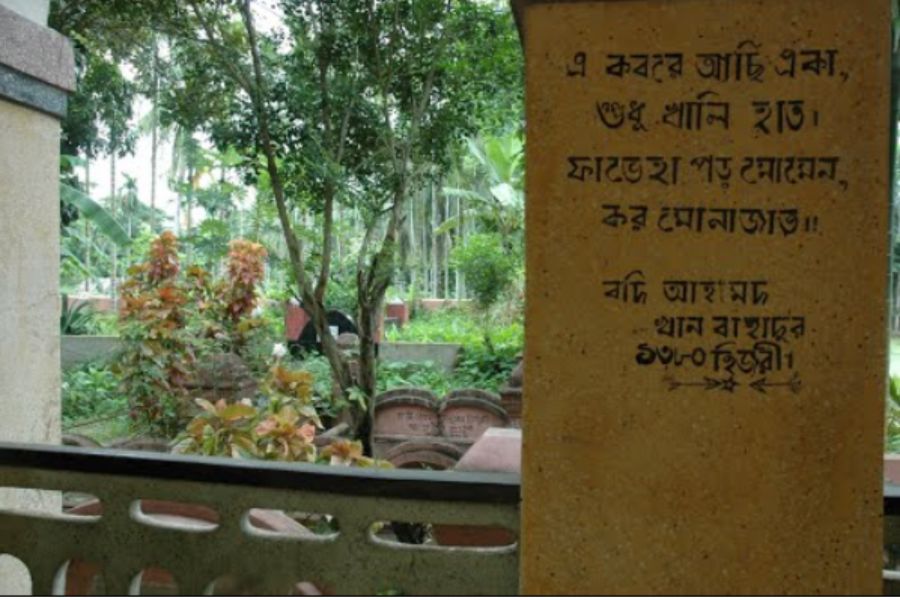 এ কবরে আছি একা,
শুধু খালি হাত।
ফাতেহা পড় মোমেন,
কর মোনাজাত॥
বদি আহামদ
খান বাহাদুর
১৩৮০ হিজরী।